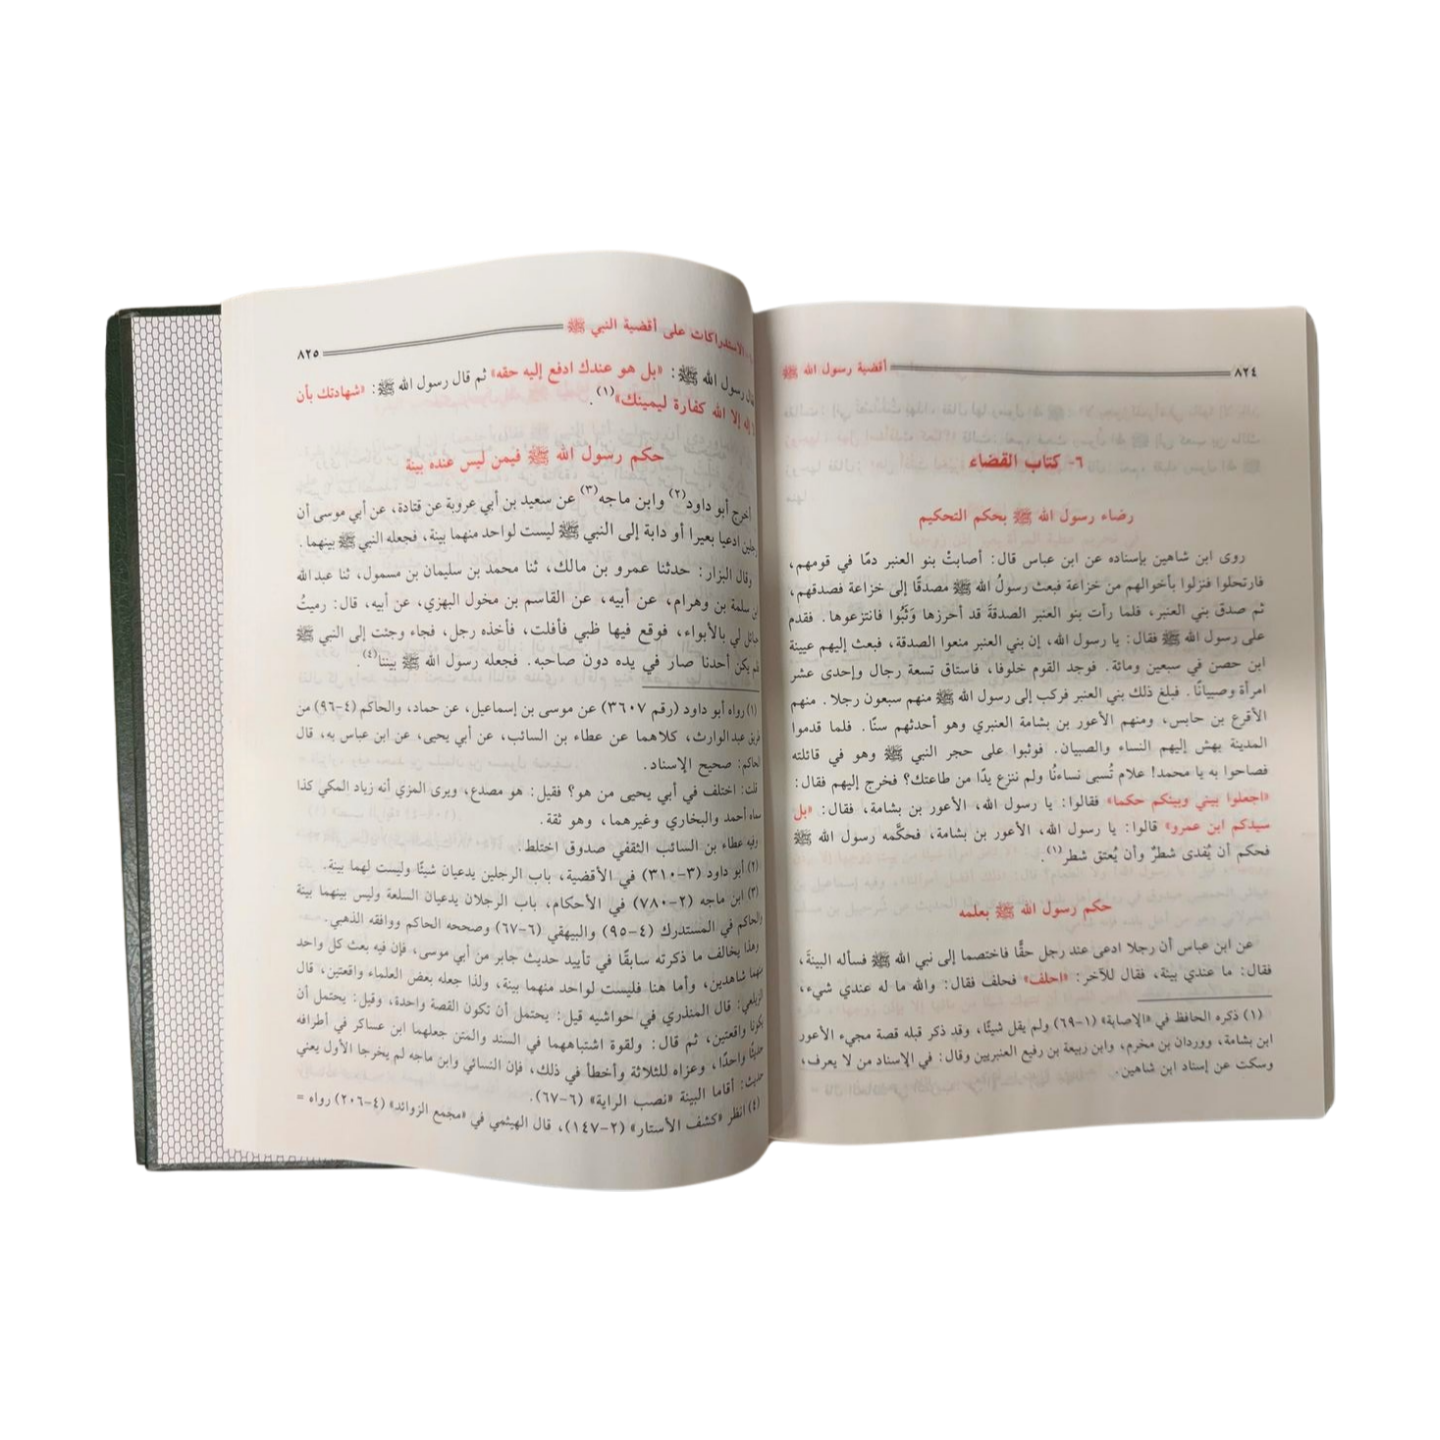 ٨٢٤ أقضية رسول الله ﷺ
٦- كتاب القضاء
رضاء رسول الله ﷺ بحكم التحكيم
روى ابن شاهين بإسناده عن ابن عباس قال: أصابتْ بنو العنبر دمًا في قومهم،
فارتحلوا فنزلوا بأخوالهم من خزاعة فبعث رسولُ الله ﷺ مصدقًا إلى خزاعة فصدقهم،
ثم صدق بني العنبر، فلما رأت بنو العنبر الصدقةَ قد أحرزها وَثَبُوا فانتزعوها. فقدم
على رسول الله ﷺ فقال: يا رسول الله، إن بني العنبر منعوا الصدقة، فبعث إليهم عيينة
ابن حصن في سبعين ومائة. فوجد القوم خلوفا، فاستاق تسعة رجال وإحدى عشر
امرأة وصبيانًا. فبلغ ذلك بني العنبر فركب إلى رسول الله ﷺ منهم سبعون رجلا. منهم
الأقرع بن حابس، ومنهم الأعور بن بشامة العنبري وهو أحدثهم سنًا. فلما قدموا
المدينة بهش إليهم النساء والصبيان. فوثبوا على حجر النبي ﷺ وهو في قائلته
فصاحوا به يا محمد! علام تُسبى نساءنُا ولم ننزع يدًا من طاعتك؟ فخرج إليهم فقال:
«اجعلوا بيني وبينكم حكما» فقالوا: يا رسول الله، الأعور بن بشامة، فقال: «بل
سيدكم ابن عمرو» قالوا: يا رسول الله، الأعور بن بشامة، فحكَّمه رسول الله ﷺ
فحكم أن يُفدى شطرٌ وأن يُعتق شطر(١).
حكم رسول الله ﷺ بعلمه
عن ابن عباس أن رجلا ادعى عند رجل حقًّا فاختصما إلى نبي الله ﷺ فسأله البينةَ،
فقال: ما عندي بينة، فقال للآخر: «احلف» فحلف فقال: والله ما له عندي شيء،
(١) ذكره الحافظ في «الإصابة» (١-٦٩) ولم يقل شيئًا، وقد ذكر قبله قصة مجيء الأعور
ابن بشامة، ووردان بن مخرم، وابن ربيعة بن رفيع العنبريين وقال: في الإسناد من لا يعرف،
وسكت عن إسناد ابن شاهين.
الاستدراكات على أقضية النبي ﷺ ٨٢٥
رسول الله ﷺ: «بل هو عندك ادفع إليه حقه» ثم قال رسول الله ﷺ: «شهادتك بأن
إله إلا الله كفارة ليمينك»(١).
حكم رسول الله ﷺ فيمن ليس عنده بينة
أخرج أبو داود(٢) وابن ماجه(٣) عن سعيد بن أبي عروبة عن قتادة، عن أبي موسى أن
رجلين ادعيا بعيرا أو دابة إلى النبي ﷺ ليست لواحد منهما بينة، فجعله النبي ﷺ بينهما.
وقال البزار: حدثنا عمرو بن مالك، ثنا محمد بن سليمان بن مسمول، ثنا عبد الله
بن سلمة بن وهرام، عن أبيه، عن القاسم بن مخول البهزي، عن أبيه، قال: رميتُ
حبائل لي بالأبواء، فوقع فيها ظبي فأفلت، فأخذه رجل، فجاء وجئت إلى النبي ﷺ
فلم يكن أحدنا صار في يده دون صاحبه. فجعله رسول الله ﷺ بيننا(٤).
(١) رواه أبو داود (رقم ٣٦٠٧) عن موسى بن إسماعيل، عن حماد، والحاكم (٤-٩٦) من
طريق عبد الوارث، كلاهما عن عطاء بن السائب، عن أبي يحيى، عن ابن عباس به، قال
الحاكم: صحيح الإسناد.
قلت: اختلف في أبي يحيى من هو؟ فقيل: هو مصدع، ويرى المزي أنه زياد المكي كذا
سماه أحمد والبخاري وغيرهما، وهو ثقة.
وفيه عطاء بن السائب الثقفي صدوق اختلط.
(٢) أبو داود (٣-٣١٠) في الأقضية، باب الرجلين يدعيان شيئًا وليست لهما بينة.
(٣) ابن ماجه (٢-٧٨٠) في الأحكام، باب الرجلان يدعيان السلعة وليس بينهما بينة
والحاكم في المستدرك (٤-٩٥) والبيهقي (٦-٦٧) وصححه الحاكم ووافقه الذهبي.
وهذا يخالف ما ذكرته سابقًا في تأييد حديث جابر من أبي موسى، فإن فيه بعث كل واحد
منهما شاهدين، وأما هنا فليست لواحد منهما بينة، ولذا جعله بعض العلماء واقعتين، قال
الزيلعي: قال المنذري في حواشيه قيل: يحتمل أن تكون القصة واحدة، وقيل: يحتمل أن
يكونا واقعتين، ثم قال: ولقوة اشتباههما في السند والمتن جعلهما ابن عساكر في أطرافه
حديثًا واحدًا، وعزاه للثلاثة وأخطأ في ذلك، فإن النسائي وابن ماجه لم يخرجا الأول يعني
حديث: أقاما البينة «نصب الراية» (٦-٦٧).
(٤) انظر «كشف الأستار» (٢-١٤٧)، قال الهيثمي في «مجمع الزوائد» (٤-٢٠٦) رواه =